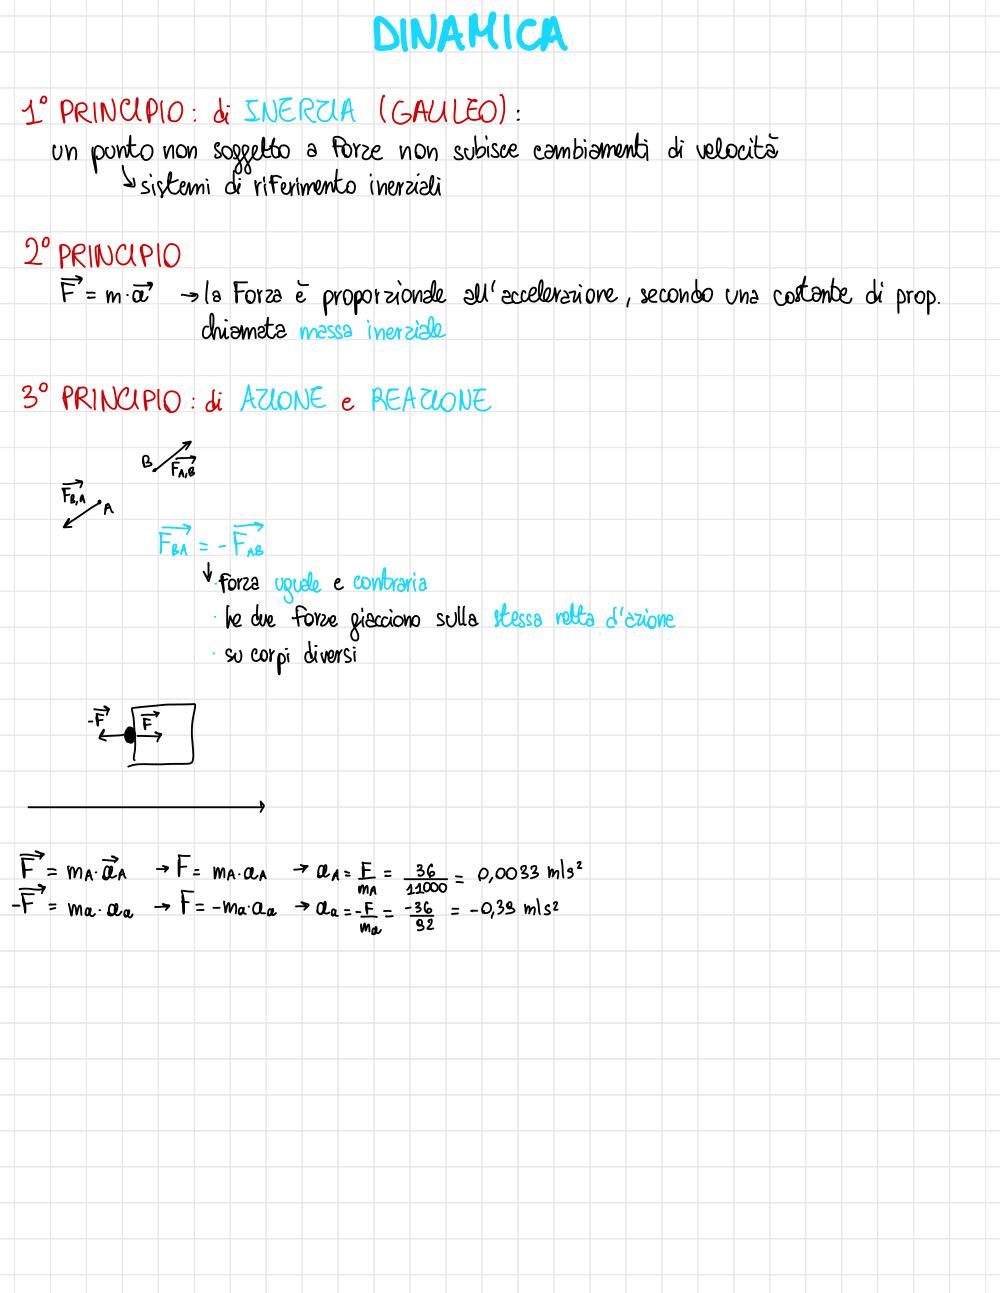 DINAMICA
1° PRINCIPIO: di INERZIA (GALILEO):
un punto non soggetto a forze non subisce cambiamenti di velocità
↳ sistemi di riferimento inerziali
2° PRINCIPIO
F⃗ = m·a⃗ → la Forza è proporzionale all'accelerazione, secondo una costante di prop.
chiamata massa inerziale
3° PRINCIPIO: di AZIONE e REAZIONE
B F⃗A,B
F⃗B,A A
F⃗BA = -F⃗AB
↓ · forza uguale e contraria
· le due forze giacciono sulla stessa retta d'azione
· su corpi diversi
-F⃗ F⃗
F⃗ = mA·a⃗A → F = mA·aA → aA = F/mA = 36/11000 = 0,0033 m/s²
-F⃗ = ma·aa → F = -ma·aa → aa = -F/ma = -36/92 = -0,39 m/s²